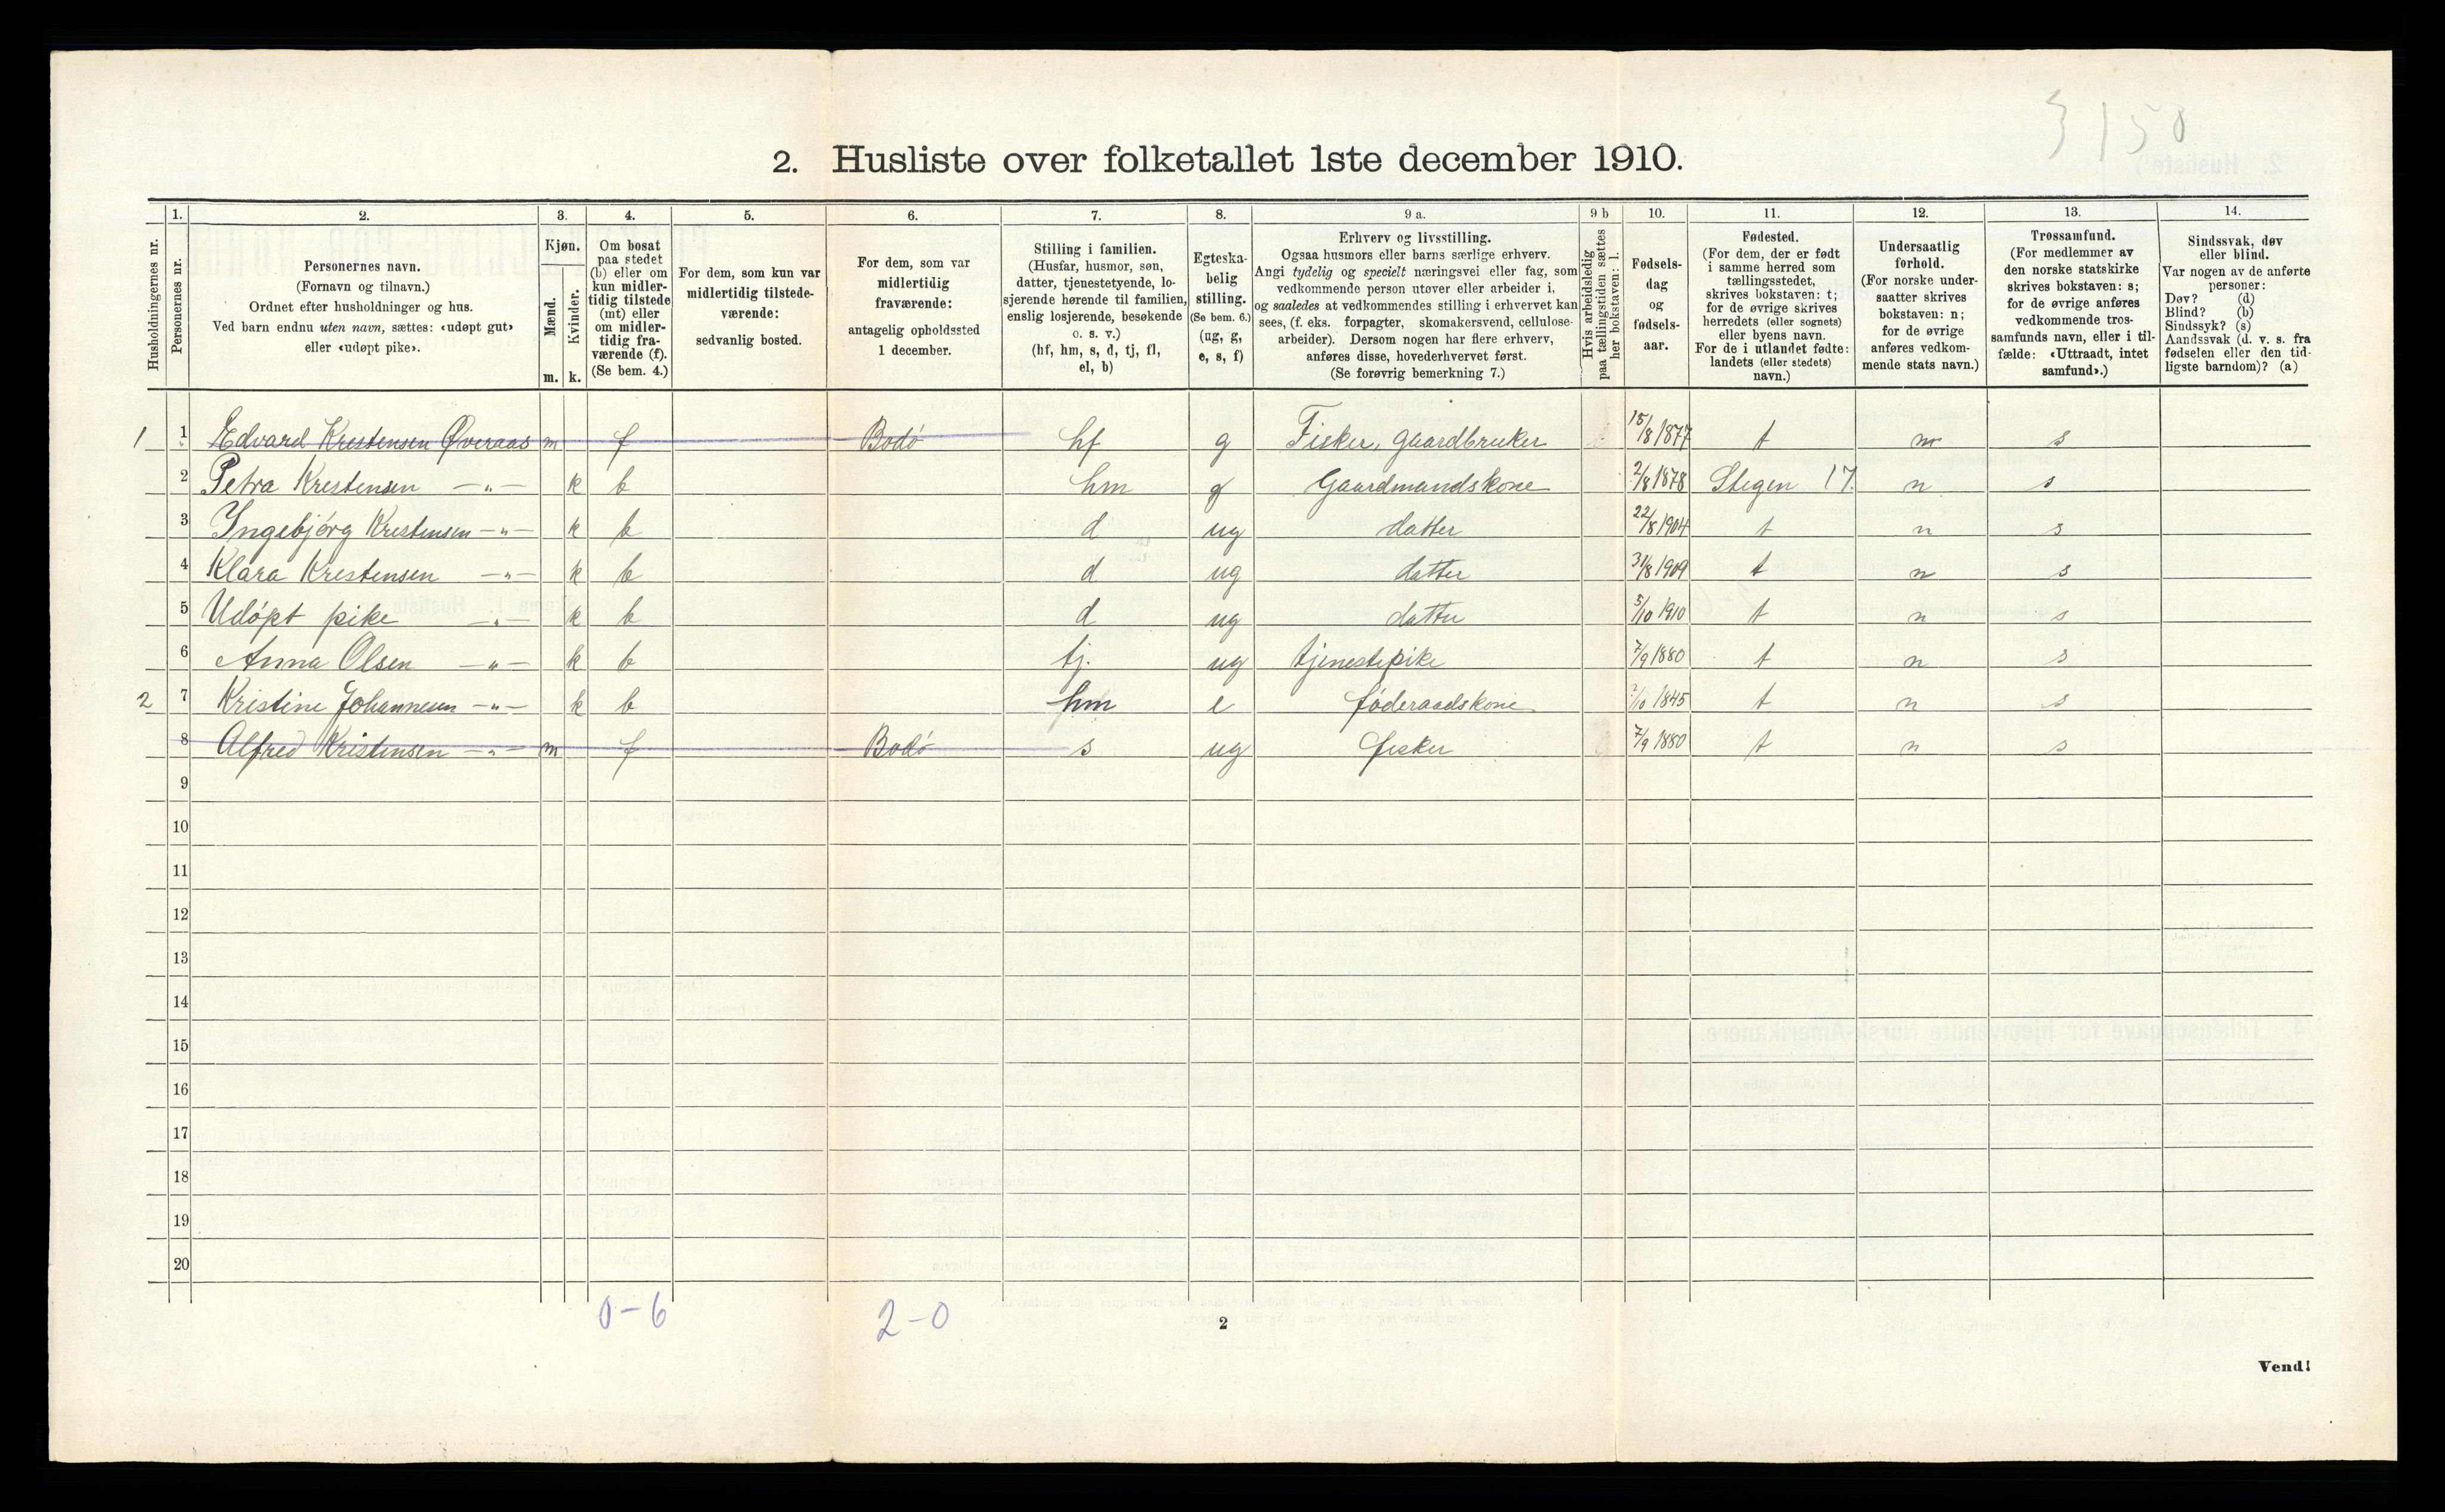 3150
2. Husliste over folketallet 1ste december 1910.
Husholdningernes nr.
1.
Personernes nr.
2.
Personernes navn.
(Fornavn og tilnavn.)
Ordnet efter husholdninger og hus.
Ved barn endnu uten navn, sættes: «udøpt gut»
eller «udøpt pike».
3.
Kjøn.
Mænd.
Kvinder.
m. k.
4.
Om bosat
paa stedet
(b) eller om
kun midler-
tidig tilstede
(mt) eller
om midler-
tidig fra-
værende (f).
(Se bem. 4.)
5.
For dem, som kun var
midlertidig tilstede-
værende:
sedvanlig bosted.
6.
For dem, som var
midlertidig
fraværende:
antagelig opholdssted
1 december.
7.
Stilling i familien.
(Husfar, husmor, søn,
datter, tjenestetyende, lo-
sjerende hørende til familien,
enslig losjerende, besøkende
o. s. v.)
(hf, hm, s, d, tj, fl,
el, b)
8.
Egteska-
belig
stilling.
(Se bem. 6.)
(ug, g,
e, s, f)
9 a.
Erhverv og livsstilling.
Ogsaa husmors eller barns særlige erhverv.
Angi tydelig og specielt næringsvei eller fag, som
vedkommende person utøver eller arbeider i,
og saaledes at vedkommendes stilling i erhvervet kan
sees, (f. eks. forpagter, skomakersvend, cellulose-
arbeider). Dersom nogen har flere erhverv,
anføres disse, hovederhvervet først.
(Se forøvrig bemerkning 7.)
9 b
Hvis arbeidsledig
paa tællingstiden sættes
her bokstaven: l.
10.
Fødsels-
dag
og
fødsels-
aar.
11.
Fødested.
(For dem, der er født
i samme herred som
tællingsstedet,
skrives bokstaven: t;
for de øvrige skrives
herredets (eller sognets)
eller byens navn.
For de i utlandet fødte:
landets (eller stedets)
navn.)
12.
Undersaatlig
forhold.
(For norske under-
saatter skrives
bokstaven: n;
for de øvrige
anføres vedkom-
mende stats navn.)
13.
Trossamfund.
(For medlemmer av
den norske statskirke
skrives bokstaven: s;
for de øvrige anføres
vedkommende tros-
samfunds navn, eller i til-
fælde: «Uttraadt, intet
samfund».)
14.
Sindssvak, døv
eller blind.
Var nogen av de anførte
personer:
Døv? (d)
Blind? (b)
Sindssyk? (s)
Aandssvak (d. v. s. fra
fødselen eller den tid-
ligste barndom)? (a)
1 1 Edvard Krestensen Øveraas m f Bodö hf g Fisker, gaardbruker 15/8 1877 t n s
2 Petra Krestensen —"— k b hm g Gaardmandskone 2/8 1878 Stegen 17. n s
3 Ingebjörg Krestensen —"— k b d ug datter 22/8 1904 t n s
4 Klara Krestensen —"— k b d ug datter 31/8 1909 t n s
5 Udöpt pike —"— k b d ug datter 5/10 1910 t n s
6 Anna Olsen —"— k b tj. ug tjenestepike 7/9 1880 t n s
2 7 Kristine Johannesen —"— k b hm e föderaadskone /10 1845 t n s
8 Alfred Kristensen —"— m f Bodö s ug fisker 7/9 1880 t n s
9
10
11
12
13
14
15
16
17
18
19
20
0–6 2–0
2
Vend!